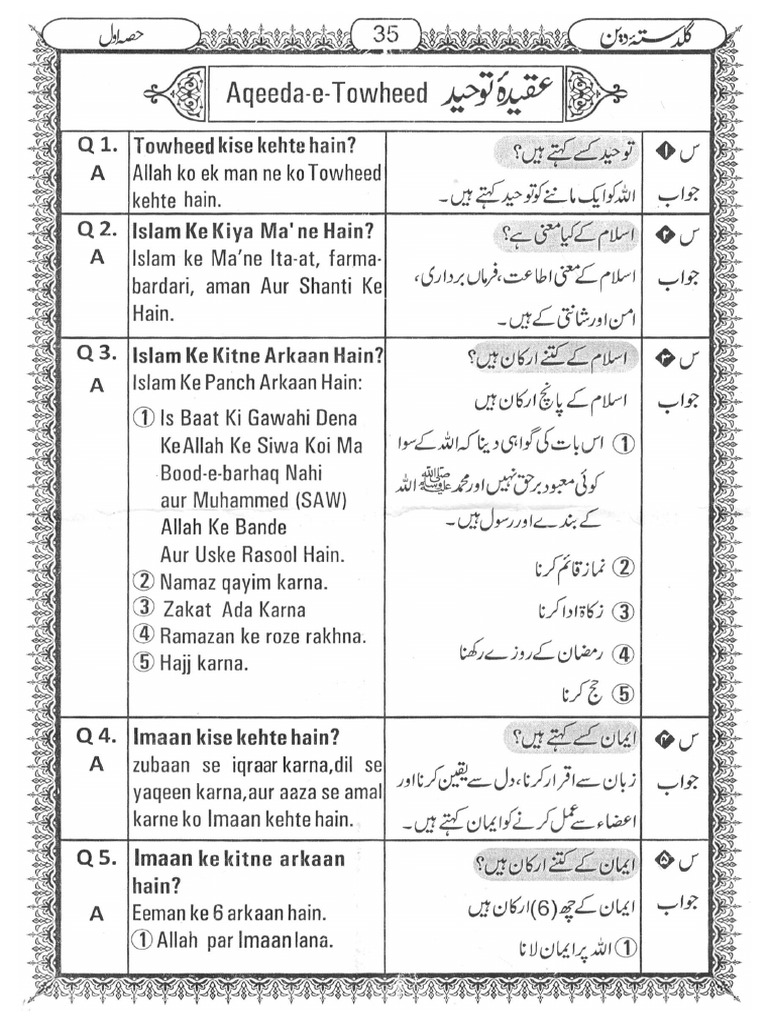 حصہ اول
35
گلدستۂ دین
Aqeeda-e-Towheed عقیدۂ توحید
Q 1. Towheed kise kehte hain?
A Allah ko ek man ne ko Towheed
kehte hain.
س ۱ توحید کسے کہتے ہیں؟
جواب اللہ کو ایک ماننے کو توحید کہتے ہیں۔
Q 2. Islam Ke Kiya Ma'ne Hain?
A Islam ke Ma'ne Ita-at, farma-
bardari, aman Aur Shanti Ke
Hain.
س ۲ اسلام کے کیا معنی ہے؟
جواب اسلام کے معنی اطاعت، فرماں برداری،
امن اور شانتی کے ہیں۔
Q 3. Islam Ke Kitne Arkaan Hain?
A Islam Ke Panch Arkaan Hain:
① Is Baat Ki Gawahi Dena
Ke Allah Ke Siwa Koi Ma
Bood-e-barhaq Nahi
aur Muhammed (SAW)
Allah Ke Bande
Aur Uske Rasool Hain.
② Namaz qayim karna.
③ Zakat Ada Karna
④ Ramazan ke roze rakhna.
⑤ Hajj karna.
س ۳ اسلام کے کتنے ارکان ہیں؟
جواب اسلام کے پانچ ارکان ہیں
① اس بات کی گواہی دینا کہ اللہ کے سوا
کوئی معبود برحق نہیں اور محمد ﷺ اللہ
کے بندے اور رسول ہیں۔
② نماز قائم کرنا
③ زکاۃ ادا کرنا
④ رمضان کے روزے رکھنا
⑤ حج کرنا
Q 4. Imaan kise kehte hain?
A zubaan se iqraar karna,dil se
yaqeen karna,aur aaza se amal
karne ko Imaan kehte hain.
س ۴ ایمان کسے کہتے ہیں؟
جواب زبان سے اقرار کرنا، دل سے یقین کرنا اور
اعضاء سے عمل کرنے کو ایمان کہتے ہیں۔
Q 5. Imaan ke kitne arkaan
hain?
A Eeman ke 6 arkaan hain.
① Allah par Imaan lana.
س ۵ ایمان کے کتنے ارکان ہیں؟
جواب ایمان کے چھ (6) ارکان ہیں
① اللہ پر ایمان لانا